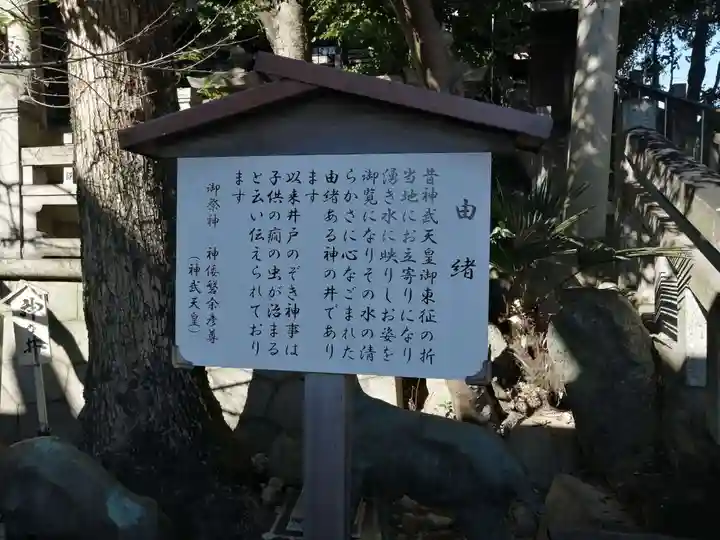 由緒
昔神武天皇御東征の折
当地にお立寄りになり
湧き水に映りしお姿を
御覧になりその水の清
らかさに心なごまれた
由緒ある神の井であり
ます
以来井戸のぞき神事は
子供の疳の虫が治まる
と云い伝えられており
ます
御祭神 神倭磐余彦尊
(神武天皇)
神の井